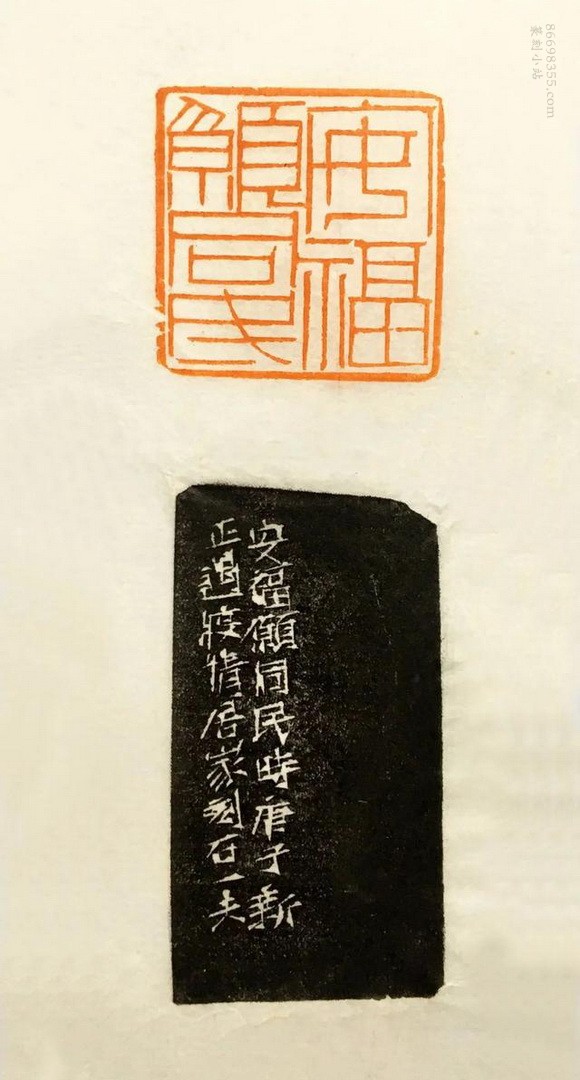 86698355.com
篆刻小站
安福
願同民
安福願同民時庚子新
正遇疫情居家刻石一夫